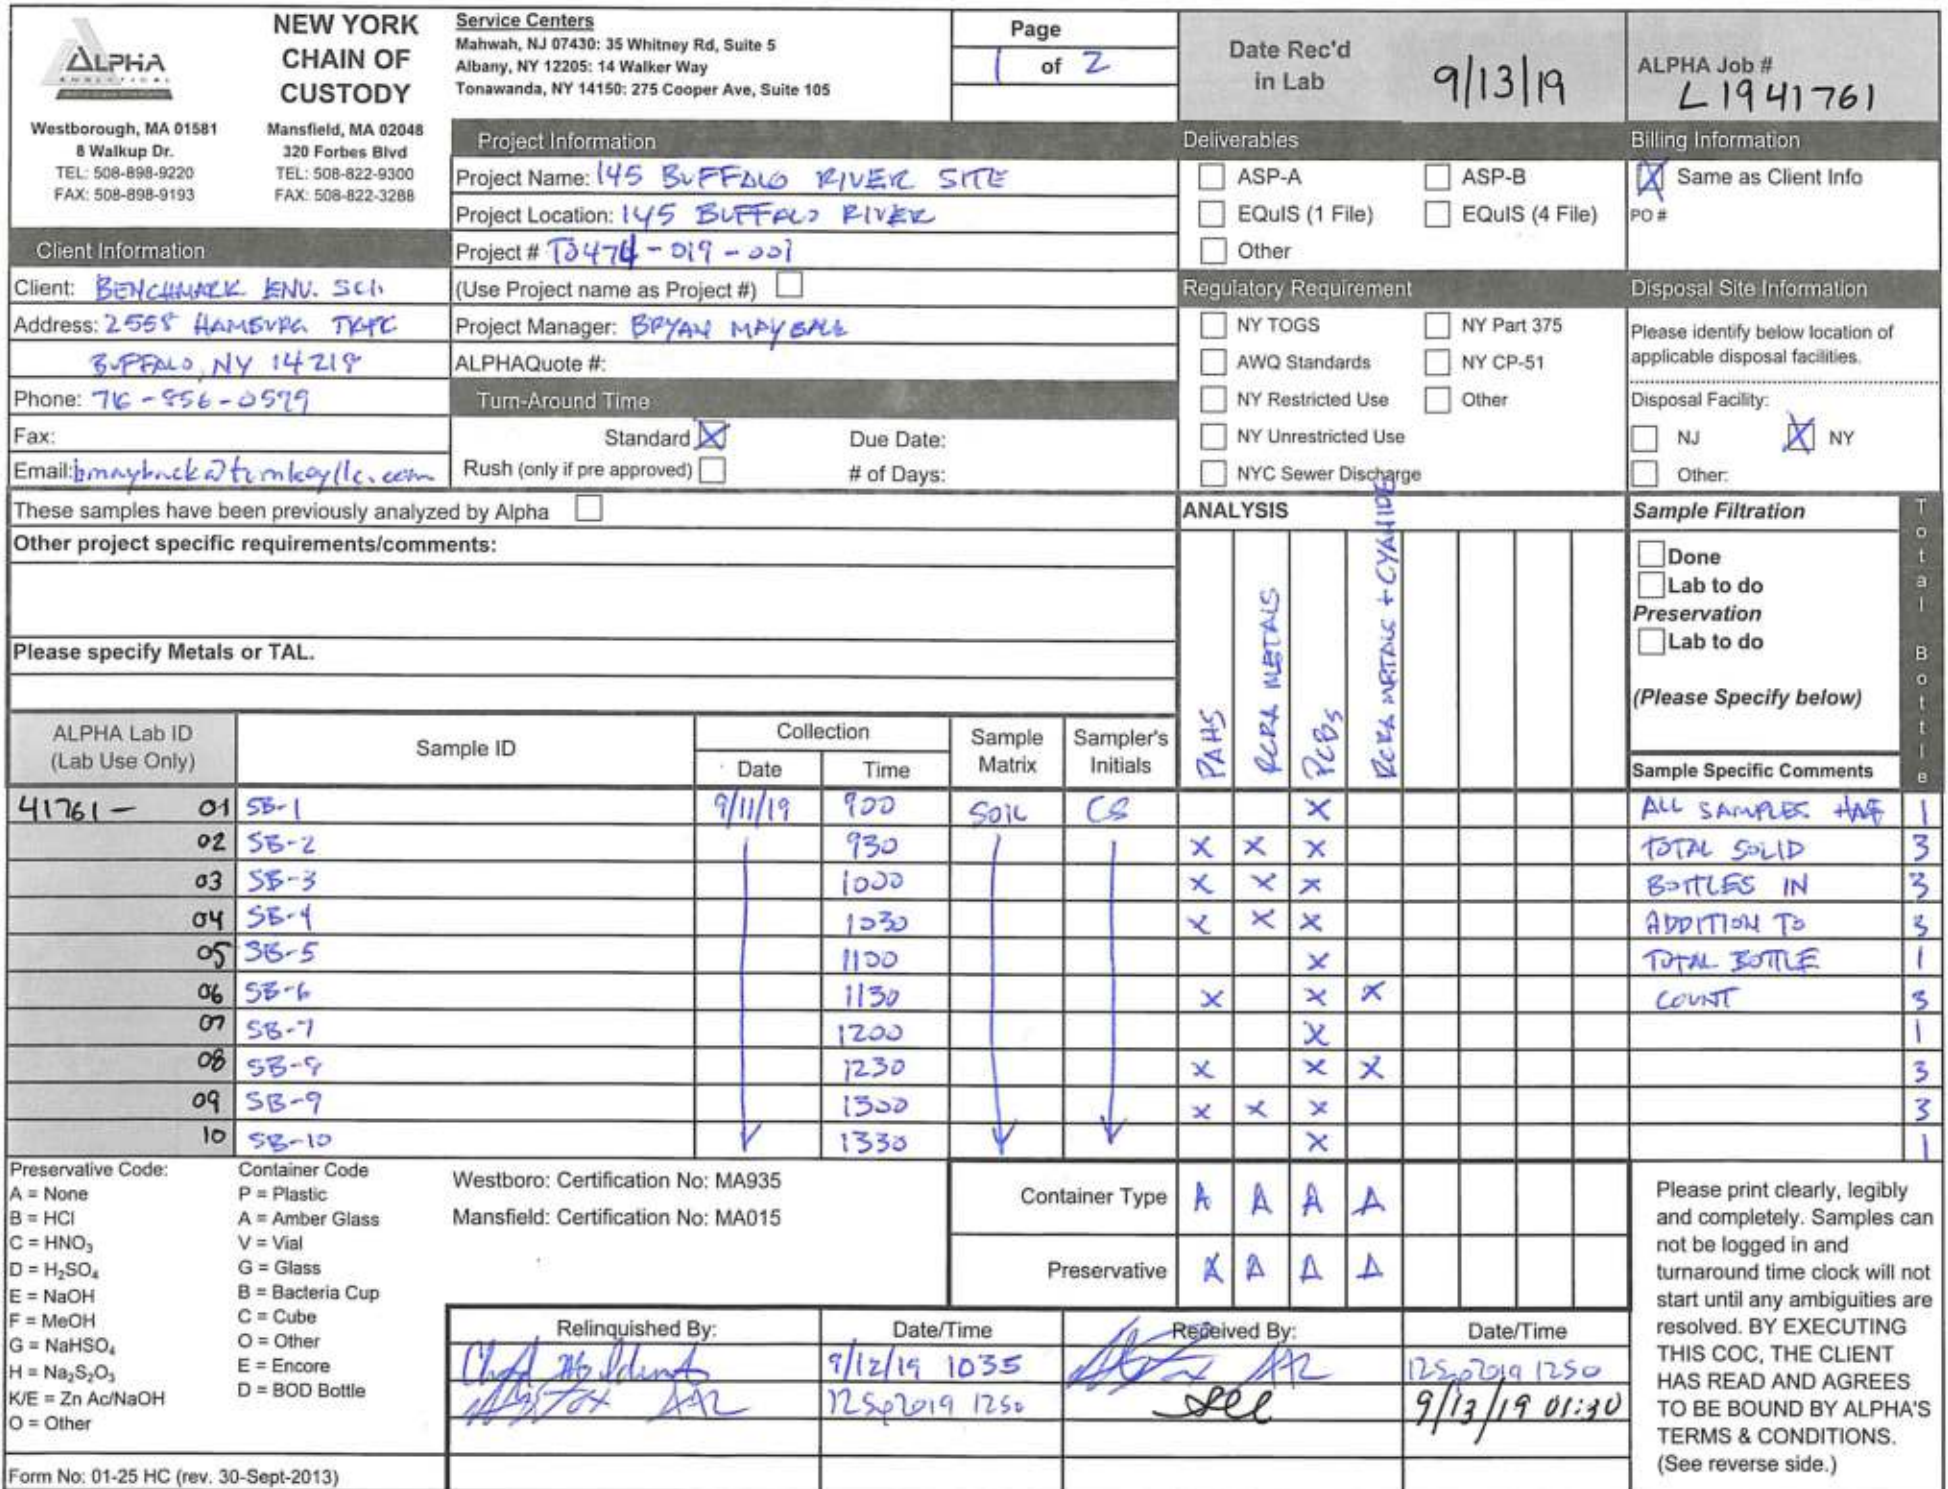 ALPHA
ANALYTICAL
NEW YORK
CHAIN OF
CUSTODY
Westborough, MA 01581
8 Walkup Dr.
TEL: 508-898-9220
FAX: 508-898-9193
Mansfield, MA 02048
320 Forbes Blvd
TEL: 508-822-9300
FAX: 508-822-3288
Service Centers
Mahwah, NJ 07430: 35 Whitney Rd, Suite 5
Albany, NY 12205: 14 Walker Way
Tonawanda, NY 14150: 275 Cooper Ave, Suite 105
Page
1 of 2
Date Rec'd
in Lab
9/13/19
ALPHA Job #
L1941761
Client Information
Client: BENCHMARK ENV. SCI.
Address: 2558 HAMBURG TKPC
BUFFALO, NY 14218
Phone: 716-856-0599
Fax:
Email:
Project Information
Project Name: 145 BUFFALO RIVER SITE
Project Location: 145 BUFFALO RIVER
Project # T0474-019-001
(Use Project name as Project #)
Project Manager: BRYAN
ALPHAQuote #:
Turn-Around Time
Standard X Due Date:
Rush (only if pre approved) # of Days:
Deliverables
ASP-A ASP-B
EQuIS (1 File) EQuIS (4 File)
Other
Regulatory Requirement
NY TOGS NY Part 375
AWQ Standards NY CP-51
NY Restricted Use Other
NY Unrestricted Use
NYC Sewer Discharge
Billing Information
X Same as Client Info
PO #
Disposal Site Information
Please identify below location of
applicable disposal facilities.
Disposal Facility:
NJ X NY
Other:
These samples have been previously analyzed by Alpha
Other project specific requirements/comments:
Please specify Metals or TAL.
ANALYSIS
PAHS
RCRA METALS
PCBs
RCRA METALS + CYANIDE
Sample Filtration
Done
Lab to do
Preservation
Lab to do
(Please Specify below)
Total Bottle
ALPHA Lab ID
(Lab Use Only)
Sample ID
Collection
Date Time
Sample
Matrix
Sampler's
Initials
Sample Specific Comments
41761- 01 SB-1 9/11/19 900 SOIL CS X ALL SAMPLES 1
02 SB-2 930 X X X TOTAL SOLID 3
03 SB-3 1000 X X X BOTTLES IN 3
04 SB-4 1030 X X X ADDITION TO 3
05 SB-5 1100 X TOTAL BOTTLE 1
06 SB-6 1130 X X X COUNT 3
07 SB-7 1200 X 1
08 SB-8 1230 X X X 3
09 SB-9 1300 X X X 3
10 SB-10 1330 X 1
Preservative Code:
A = None
B = HCl
C = HNO₃
D = H₂SO₄
E = NaOH
F = MeOH
G = NaHSO₄
H = Na₂S₂O₃
K/E = Zn Ac/NaOH
O = Other
Container Code
P = Plastic
A = Amber Glass
V = Vial
G = Glass
B = Bacteria Cup
C = Cube
O = Other
E = Encore
D = BOD Bottle
Westboro: Certification No: MA935
Mansfield: Certification No: MA015
Container Type A A A A
Preservative A A A A
Relinquished By: Date/Time Received By: Date/Time
9/12/19 1035 AAL 12Sep2019 1250
AAL 12Sep2019 1250 9/13/19 01:30
Please print clearly, legibly
and completely. Samples can
not be logged in and
turnaround time clock will not
start until any ambiguities are
resolved. BY EXECUTING
THIS COC, THE CLIENT
HAS READ AND AGREES
TO BE BOUND BY ALPHA'S
TERMS & CONDITIONS.
(See reverse side.)
Form No: 01-25 HC (rev. 30-Sept-2013)